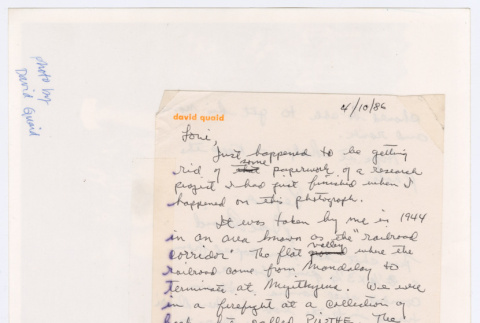 photo by
David Quaid
4/10/86
david quaid
Lori,
Just happened to be getting
rid of some paperwork of a research
project I had just finished when I
happened on this photograph.
It was taken by me in 1944
in an area known as the "railroad
corridor." The flat valley where the
railroad came from Mandalay to
terminate at Myitkyina. We were
in a firefight at a collection of
called The